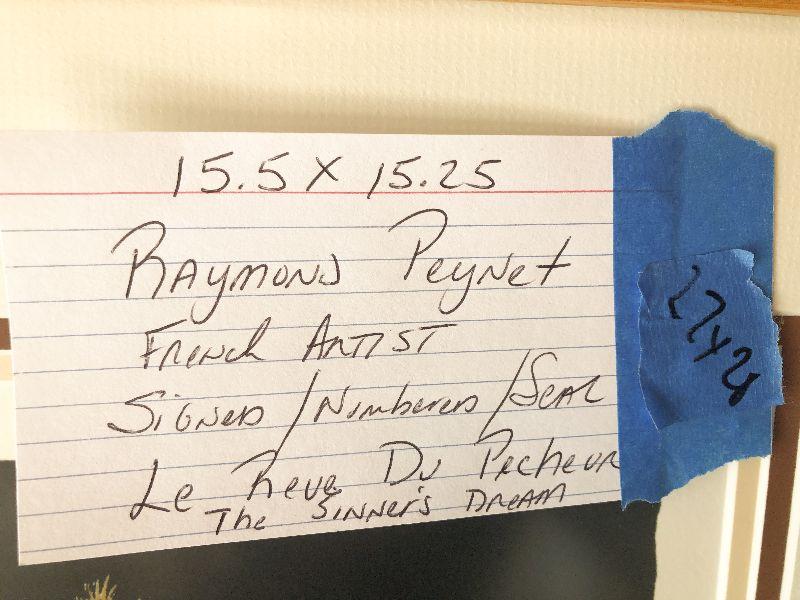 15.5 X 15.25
Raymond Peynet
French Artist
Signed / Numbered / Seal
Le Reve Du Pecheur
The Sinner's Dream